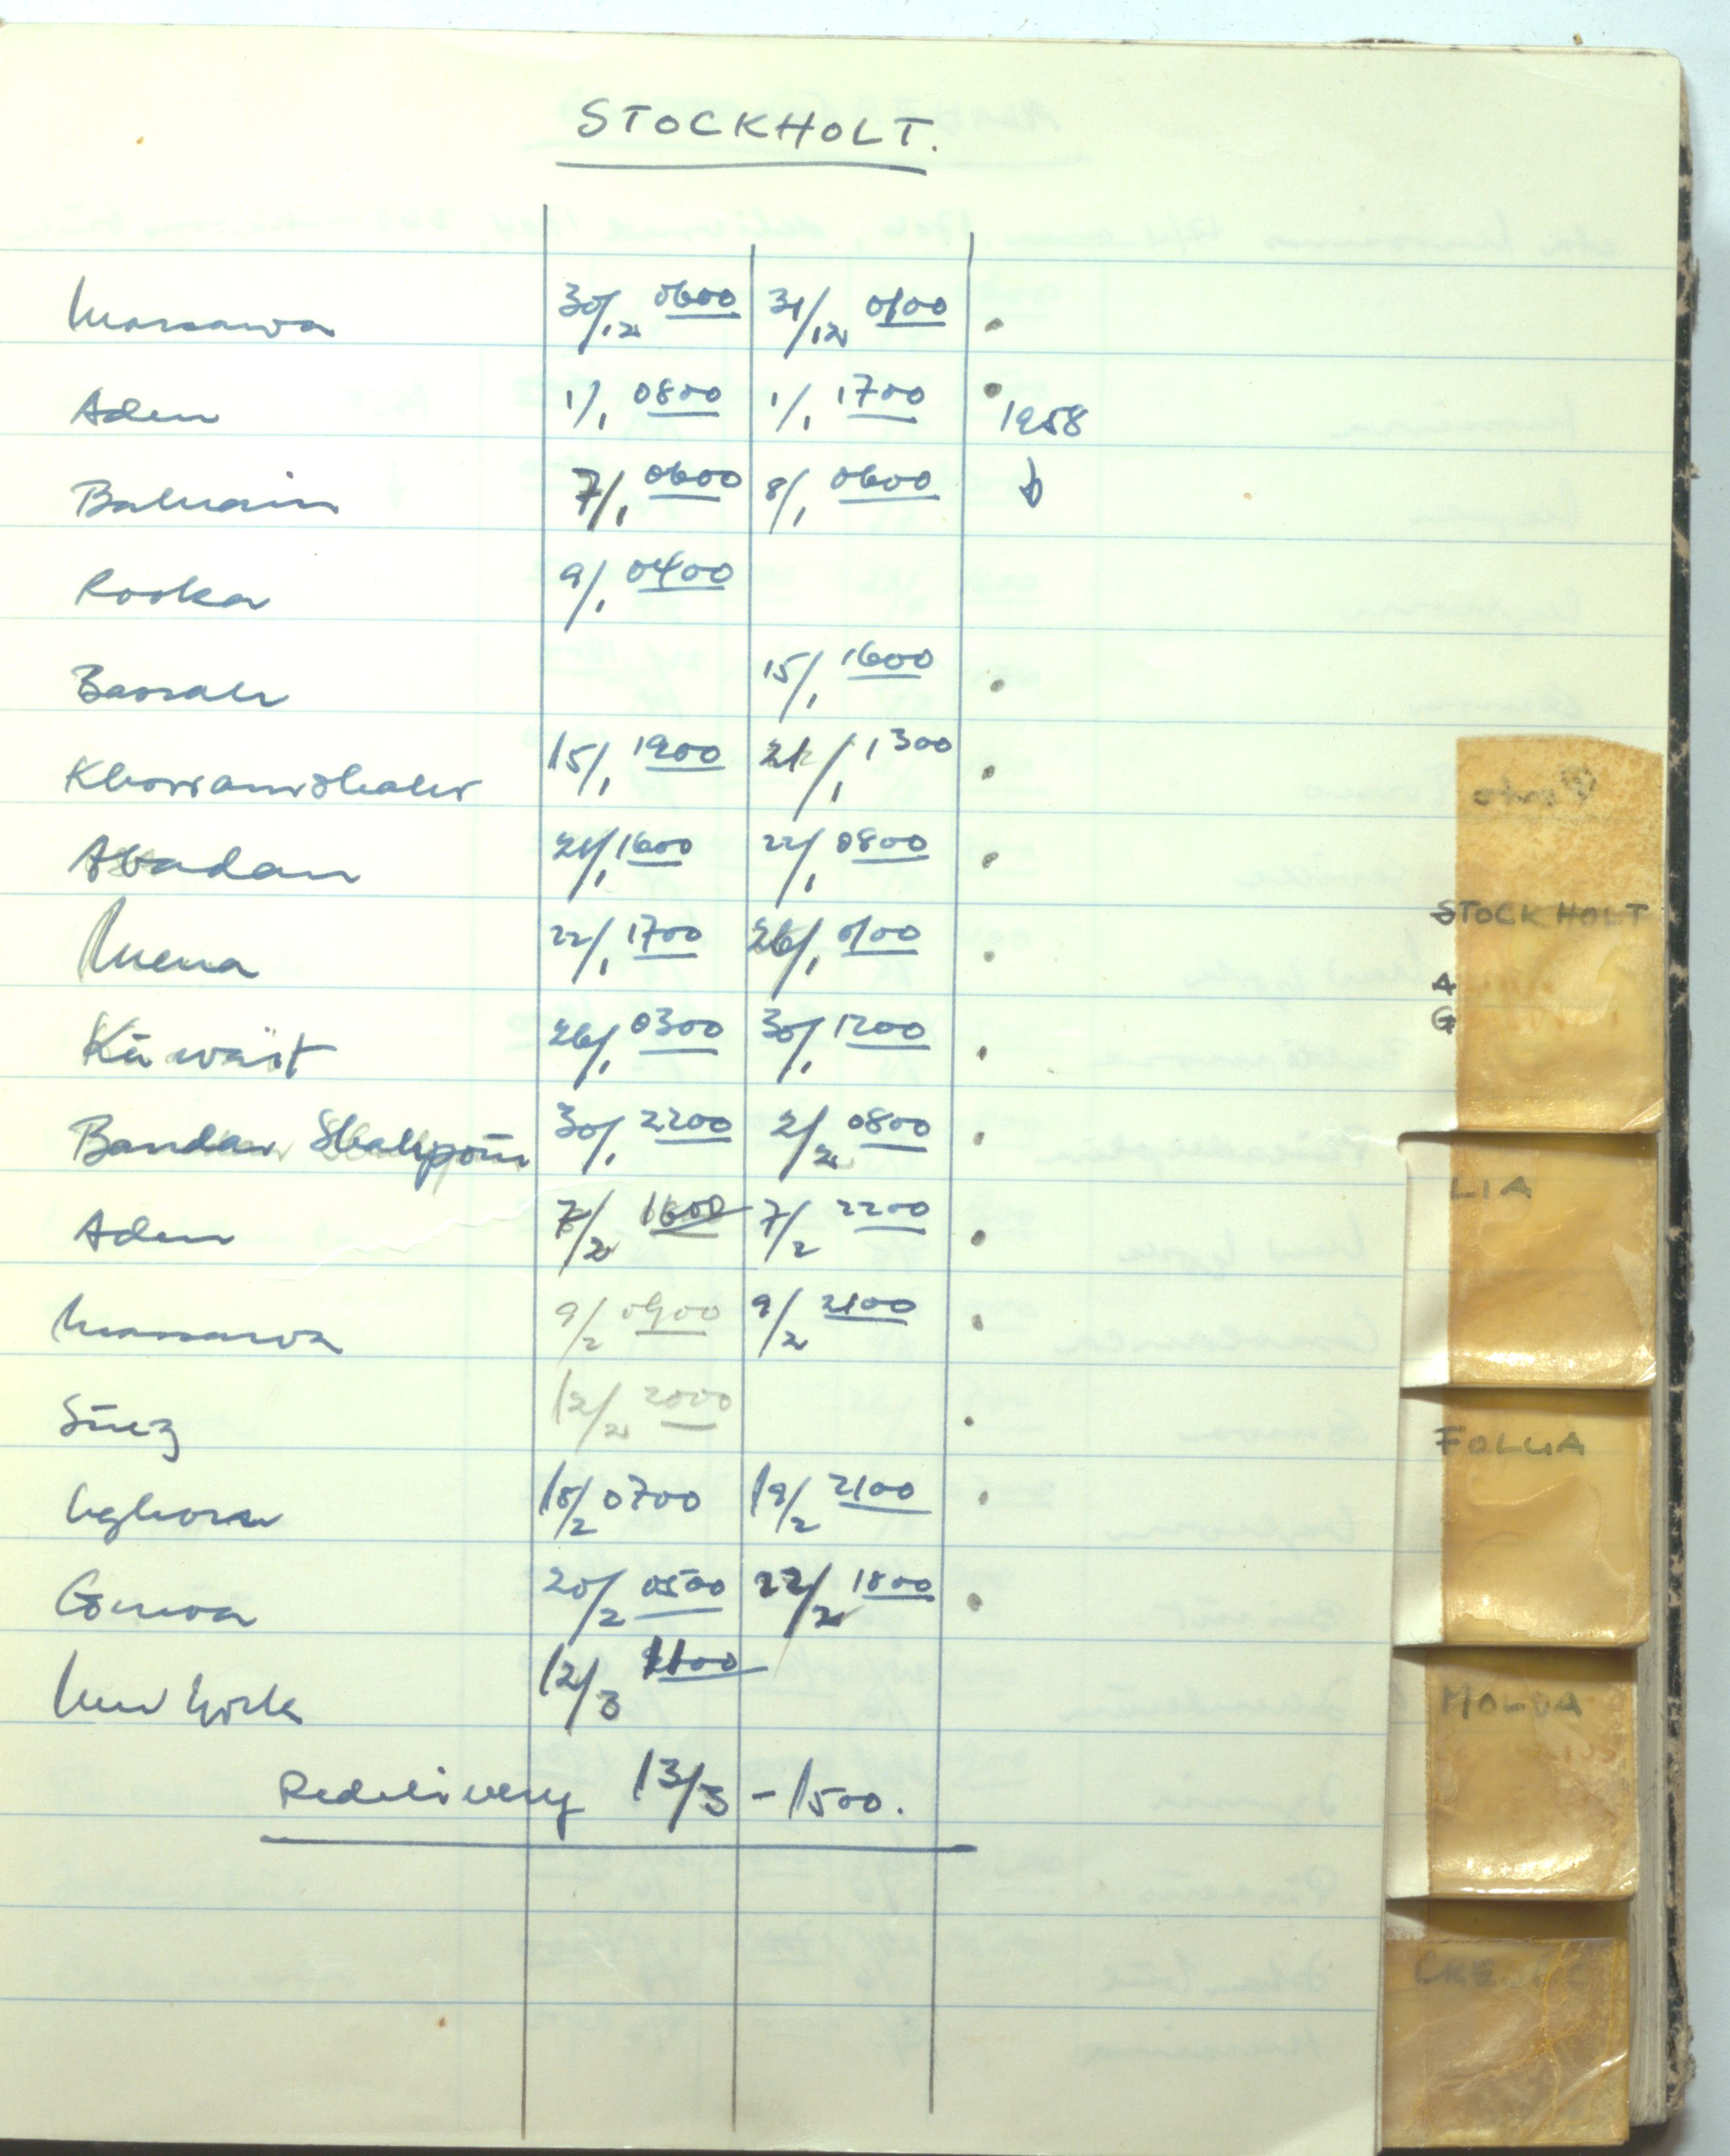 STOCKHOLT.
Massawa 30/12 0600 31/12 0100
Aden 1/1 0800 1/1 1700 1958
Bahrain 7/1 0600 8/1 0600
Rooka 9/1 0400
Basrah 15/1 1600
Khorramshahr 15/1 1900 21/1 1300
Abadan 21/1 1600 22/1 0800
Mena 22/1 1700 26/1 0100
Kuwait 26/1 0300 30/1 1200
Bandar Shahpour 30/1 2200 2/2 0800
Aden 7/2 1600 7/2 2200
Massawa 9/2 0900 9/2 2100
Suez 12/2 2000
Leghorn 18/2 0700 19/2 2100
Genoa 20/2 0500 22/2 1800
New York 12/3 1100
Redelivery 13/3 - 1500.
STOCKHOLT
A
G
LIA
FOLGA
MOLDA